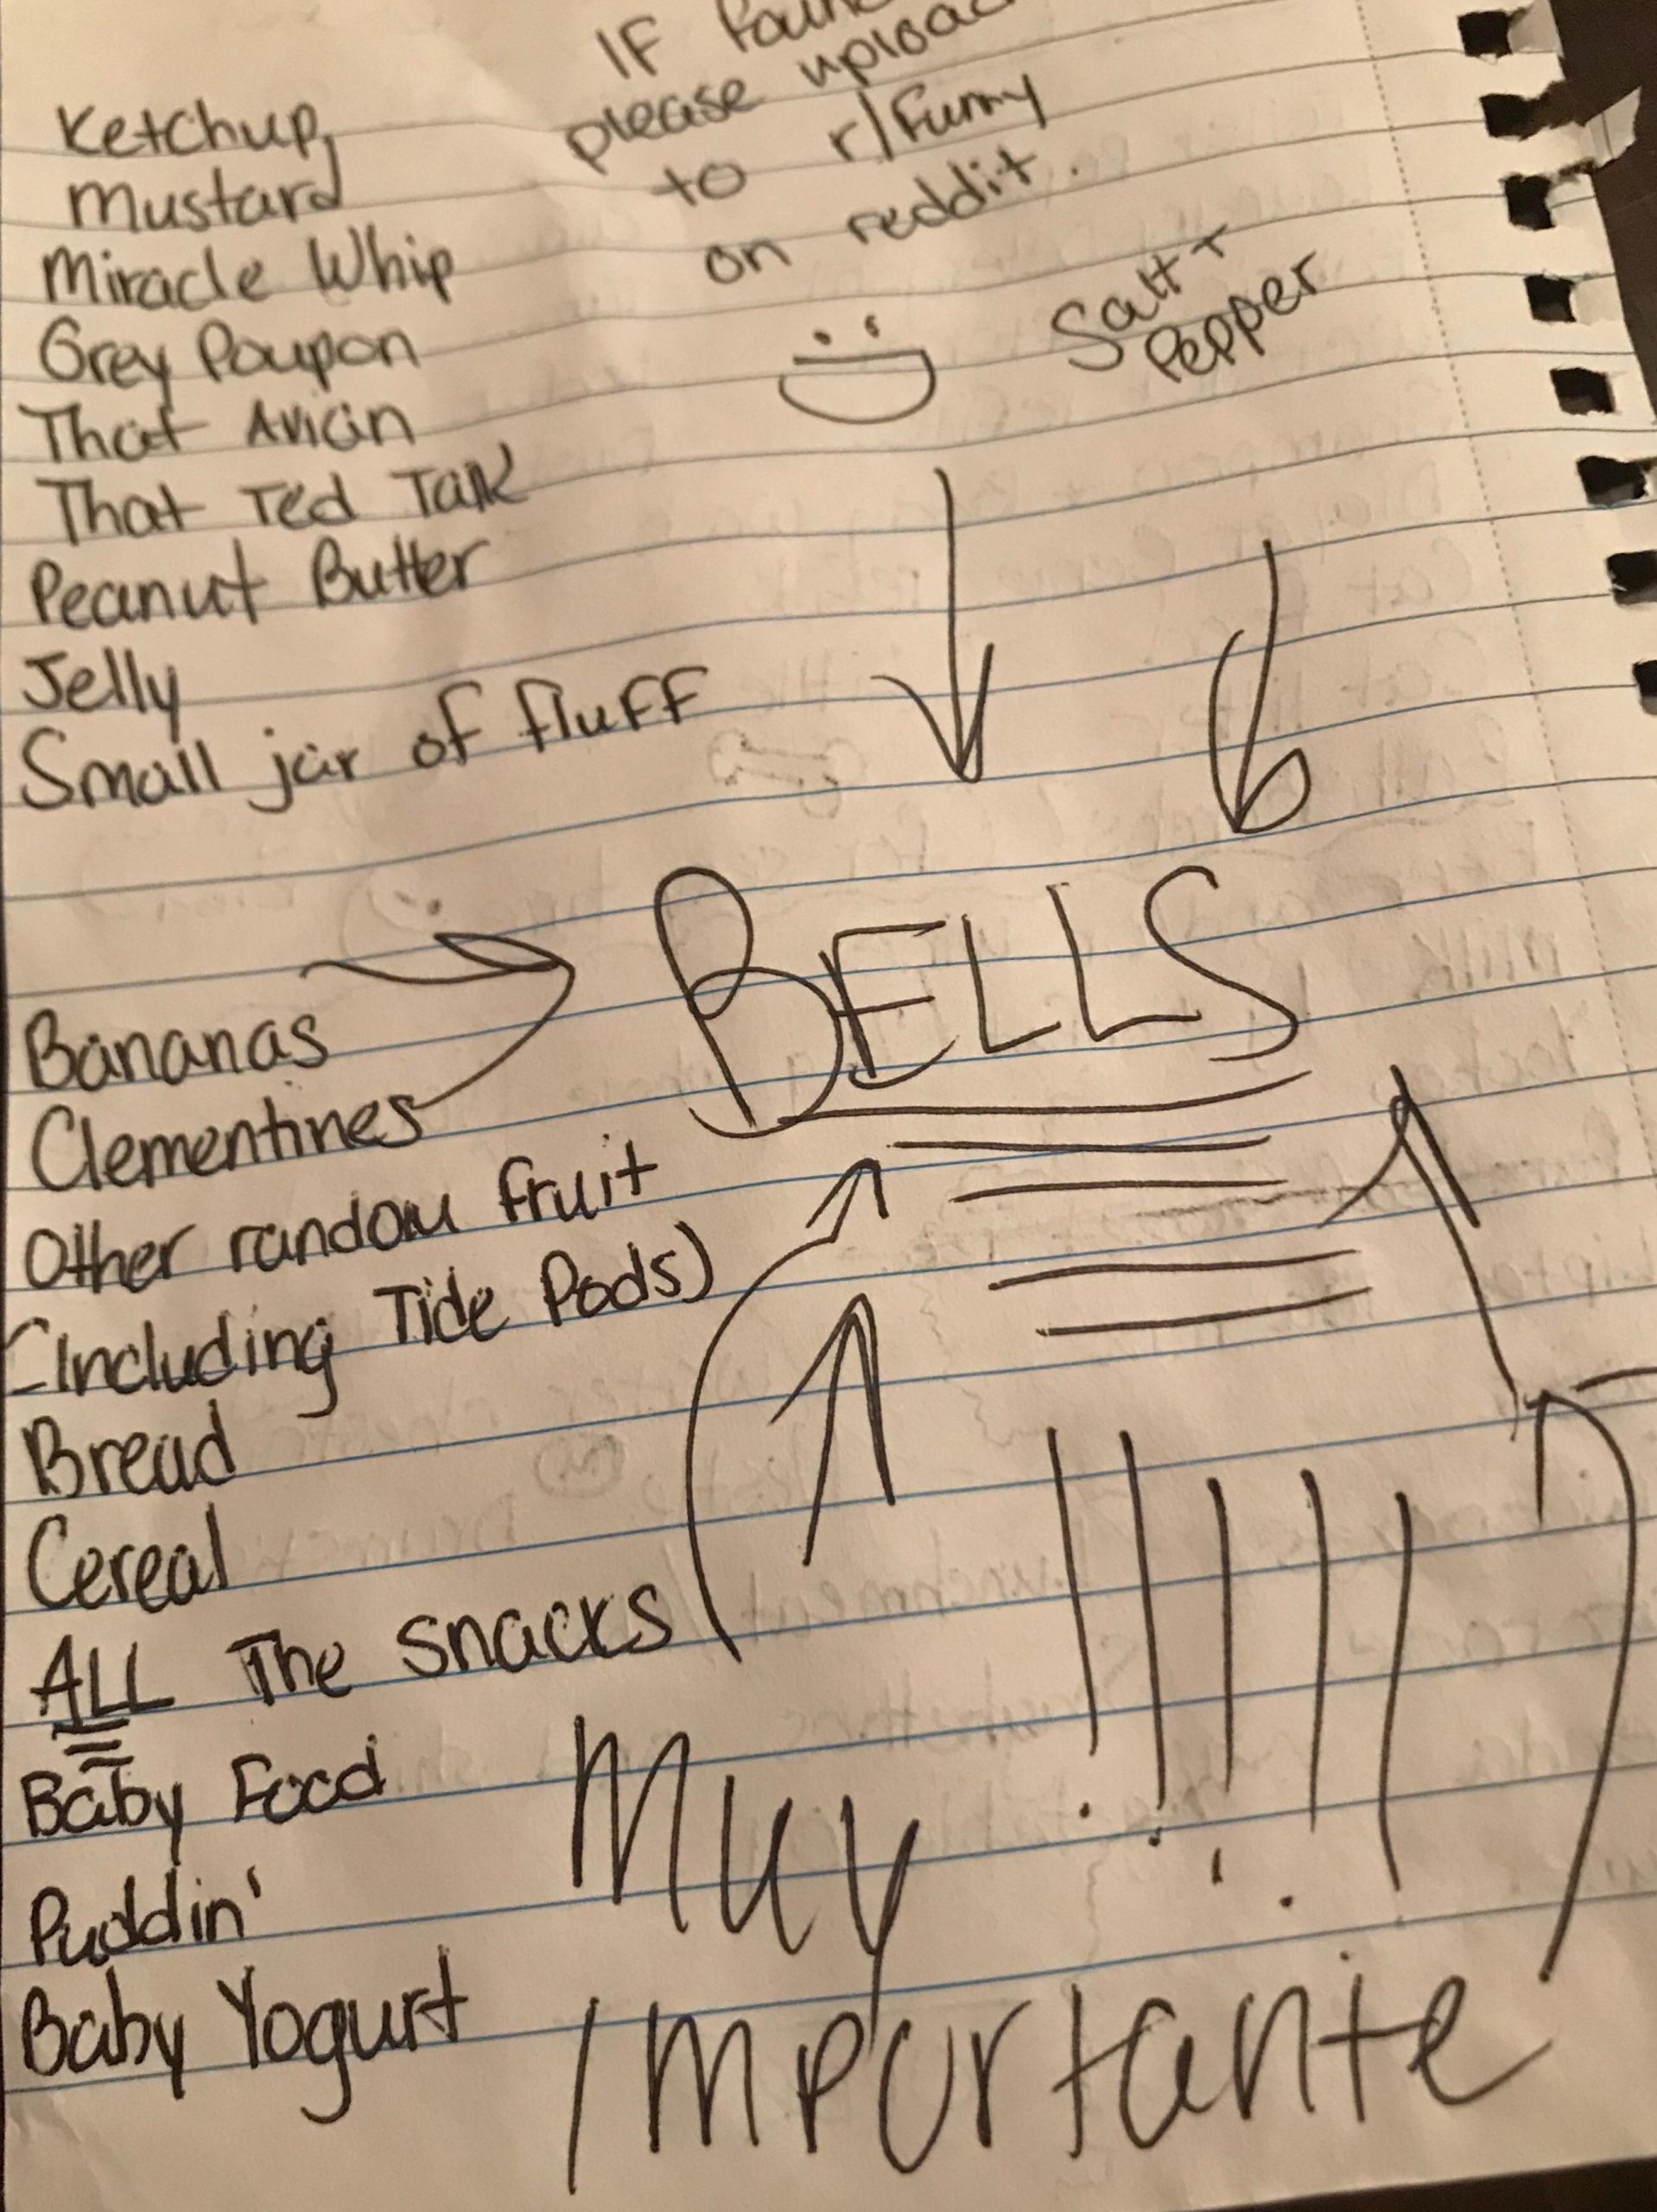 IF
please
to r/Funny
on reddit.
Salt +
Pepper
Ketchup
Mustard
Miracle Whip
Grey Poupon
That Avian
That Ted Talk
Peanut Butter
Jelly
Small jar of fluff
BELLS
Bananas
Clementines
Other random fruit
(Including Tide Pods)
Bread
Cereal
ALL The snacks
Baby Food
Puddin'
Baby Yogurt
!!!!!
Muy
Importante